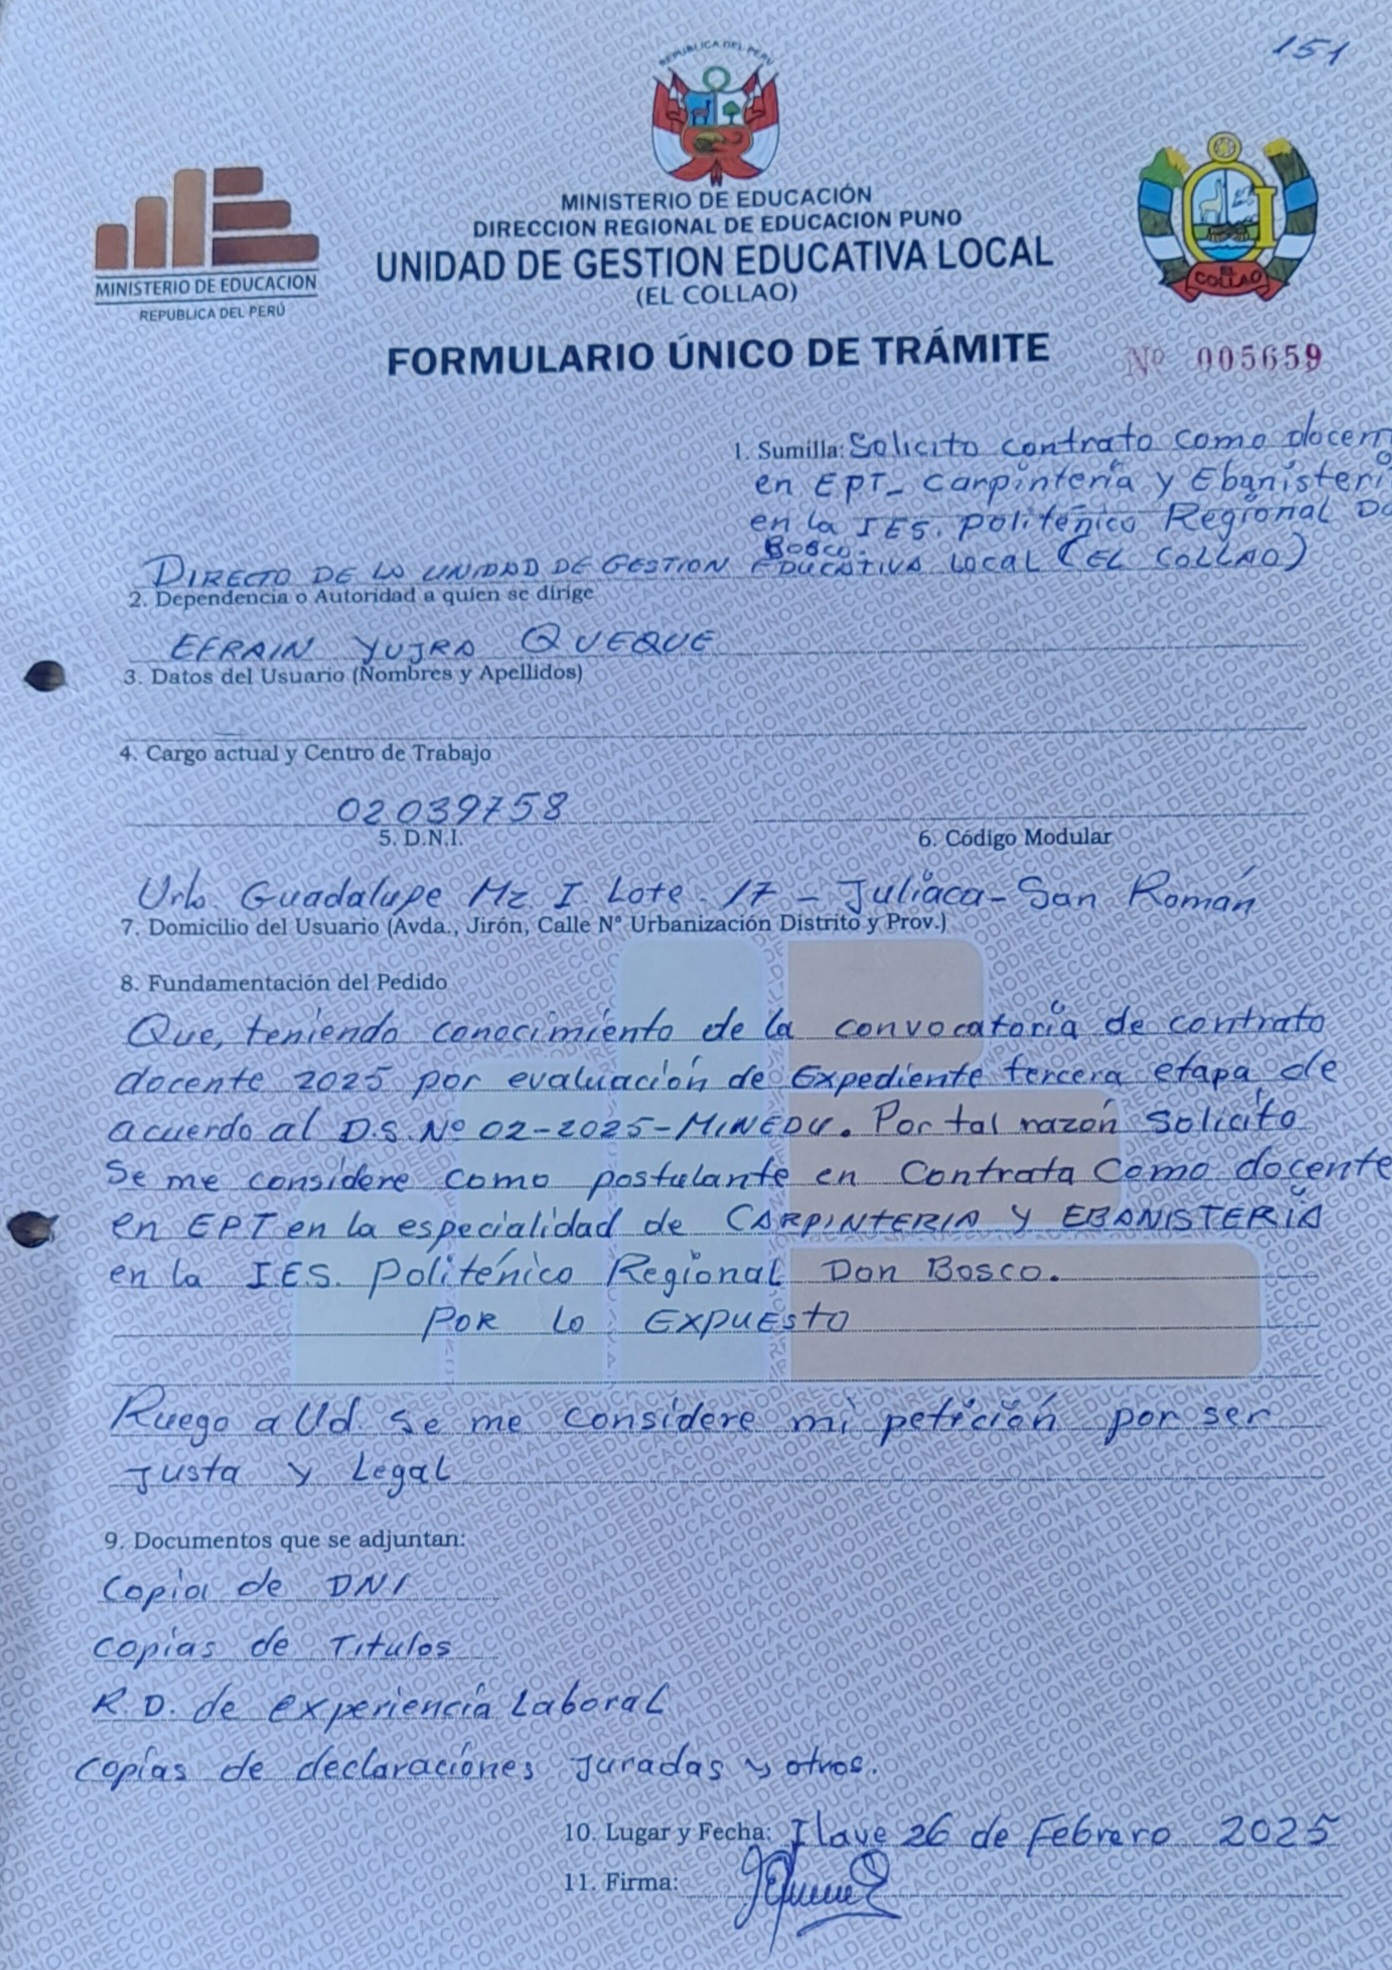 151
REPUBLICA DEL PERU
MINISTERIO DE EDUCACIÓN
DIRECCION REGIONAL DE EDUCACION PUNO
UNIDAD DE GESTION EDUCATIVA LOCAL
(EL COLLAO)
MINISTERIO DE EDUCACION
REPUBLICA DEL PERÚ
EL COLLAO
FORMULARIO ÚNICO DE TRÁMITE
Nº 005659
1. Sumilla: Solicito contrato como docen
en EPT- Carpintería y Ebanisteri
en la IES. Politénico Regional Do
Bosco.
DIRECTO DE LA UNIDAD DE GESTION EDUCATIVA LOCAL (EL COLLAO)
2. Dependencia o Autoridad a quien se dirige
EFRAIN YUJRA QUEQUE
3. Datos del Usuario (Nombres y Apellidos)
4. Cargo actual y Centro de Trabajo
02039758
5. D.N.I.
6. Código Modular
Urb. Guadalupe Mz I Lote 17 - Juliaca - San Román
7. Domicilio del Usuario (Avda., Jirón, Calle N° Urbanización Distrito y Prov.)
8. Fundamentación del Pedido
Que, teniendo conocimiento de la convocatoria de contrato
docente 2025 por evaluación de Expediente tercera etapa, de
acuerdo al D.S. Nº 02-2025-MINEDU. Por tal razón solicito
Se me considere como postulante en Contrata Como docente
en EPT en la especialidad de CARPINTERIA Y EBANISTERÍA
en la I.E.S. Politénico Regional Don Bosco.
POR LO EXPUESTO
Ruego a Ud. Se me considere mi petición por ser
Justa y Legal
9. Documentos que se adjuntan:
Copia de DNI
Copias de Titulos
R.D. de experiencia Laboral
Copias de declaraciones Juradas y otros.
10. Lugar y Fecha: Ilave 26 de Febrero 2025
11. Firma: